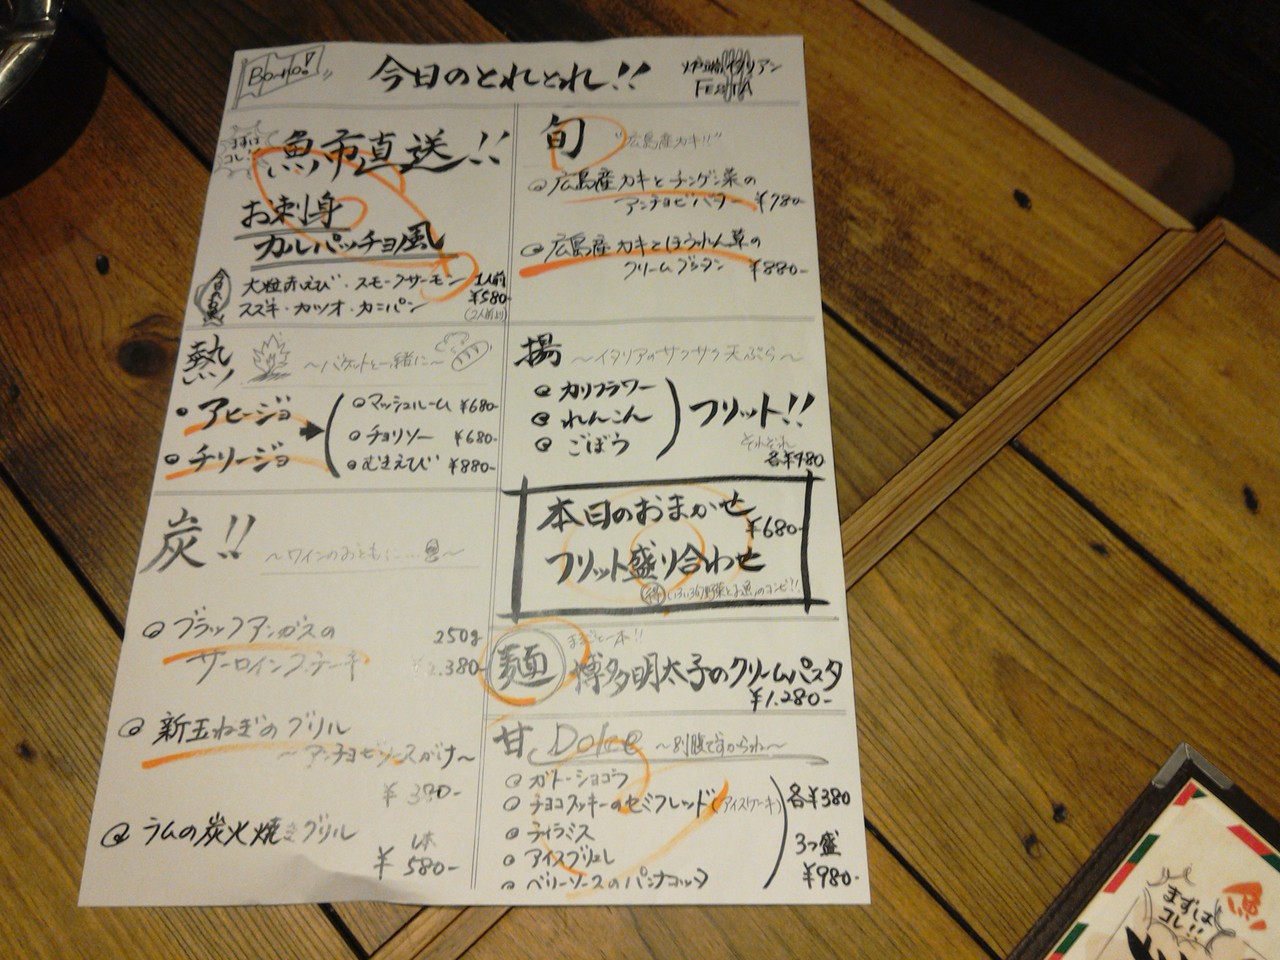 Bo-no!
今日のとれとれ!!
イタリアン
FESTA
まずは
コレ!!
魚市直送!!
お刺身
カルパッチョ風
大粒赤えび・スモークサーモン
スズキ・カツオ・カンパン
1人前
¥580-
(2人前より)
熱
～バケットと一緒に～
・アヒージョ
・チリージョ
マッシュルーム ¥680-
チョリソー ¥680-
むきえび ¥880-
炭!!
～ワインのおともに…～
ブラックアンガスの
サーロインステーキ
250g
2.380-
新玉ねぎのグリル
～アンチョビソースがけ～
¥380-
ラムの炭火焼きグリル
1本
¥580-
旬
"広島産カキ!!"
広島産カキとチンゲン菜の
アンチョビバター ¥780-
広島産カキとほうれん草の
クリームグラタン ¥880-
揚
～イタリアのサクサク天ぷら～
カリフラワー
れんこん
ごぼう
フリット!!
それぞれ
各¥480
本日のおまかせ
¥680-
フリット盛り合わせ
いろいろ野菜とお魚のコンビ!!
麺
まるごと一本!!
博多明太子のクリームパスタ
¥1.280-
甘 Dolce ～別腹ですからね～
ガトーショコラ
チョコクッキーのセミフレッド(アイスケーキ)
ティラミス
アイスブリュレ
ベリーソースのパンナコッタ
各¥380
3つ盛
¥980-
まずは
コレ!!
魚!